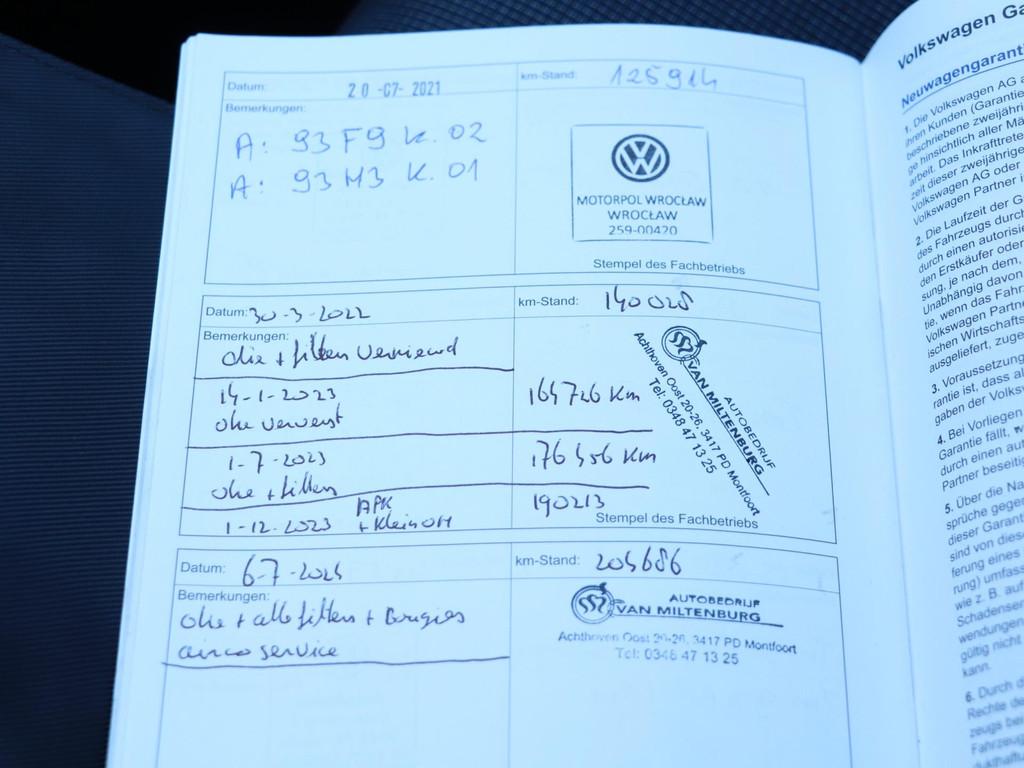 Datum: 20 -07- 2021
km-Stand: 125914
Bemerkungen:
A: 93F9 K. 02
A: 93M3 K. 01
MOTORPOL WROCŁAW
WROCŁAW
259-00420
Stempel des Fachbetriebs
Datum: 30-3-2022
km-Stand: 140028
Bemerkungen:
olie + filters vernieuwd
14-1-2023
olie ververst
1-7-2023
176456 Km
olie + filters
1-12-2023 APK
+ Klein OH
190213
AUTOBEDRIJF
VAN MILTENBURG
Achthoven Oost 20-26, 3417 PD Montfoort
Tel: 0348 47 13 25
Stempel des Fachbetriebs
Datum: 6-7-2024
km-Stand:
Bemerkungen:
olie + alle filters + Bougies
airco service
AUTOBEDRIJF
VAN MILTENBURG
Achthoven Oost 20-26, 3417 PD Montfoort
Tel: 0348 47 13 25
Volkswagen
Neuwagengarant
1. Die Volkswagen AG
ihren Kunden (Garantie
beschriebene zweijähri
ge hinsichtlich aller
arbeit. Das Inkrafttrete
zeit dieser zweijährige
Volkswagen AG oder
Volkswagen Partner
2. Die Laufzeit der
des Fahrzeugs durch
durch einen autorisie
den Erstkäufer oder
sung, je nach dem,
Unabhängig davon
tie, wenn das Fahr
Volkswagen Partne
ischen Wirtschafts
ausgeliefert, zuge
3. Voraussetzung
rantie ist, dass al
gaben der Volks
4. Bei Vorliegen
Garantie fällt,
durch einen au
Partner beseitig
5. Über die Na
sprüche gege
dieser Garant
sind von dies
ferung eines
rung) umfass
wie z. B. auf
Schadenser
wendungen
gültig nicht
kann.
6. Durch d
Rechte de
zeugs bei
Fahrzeug